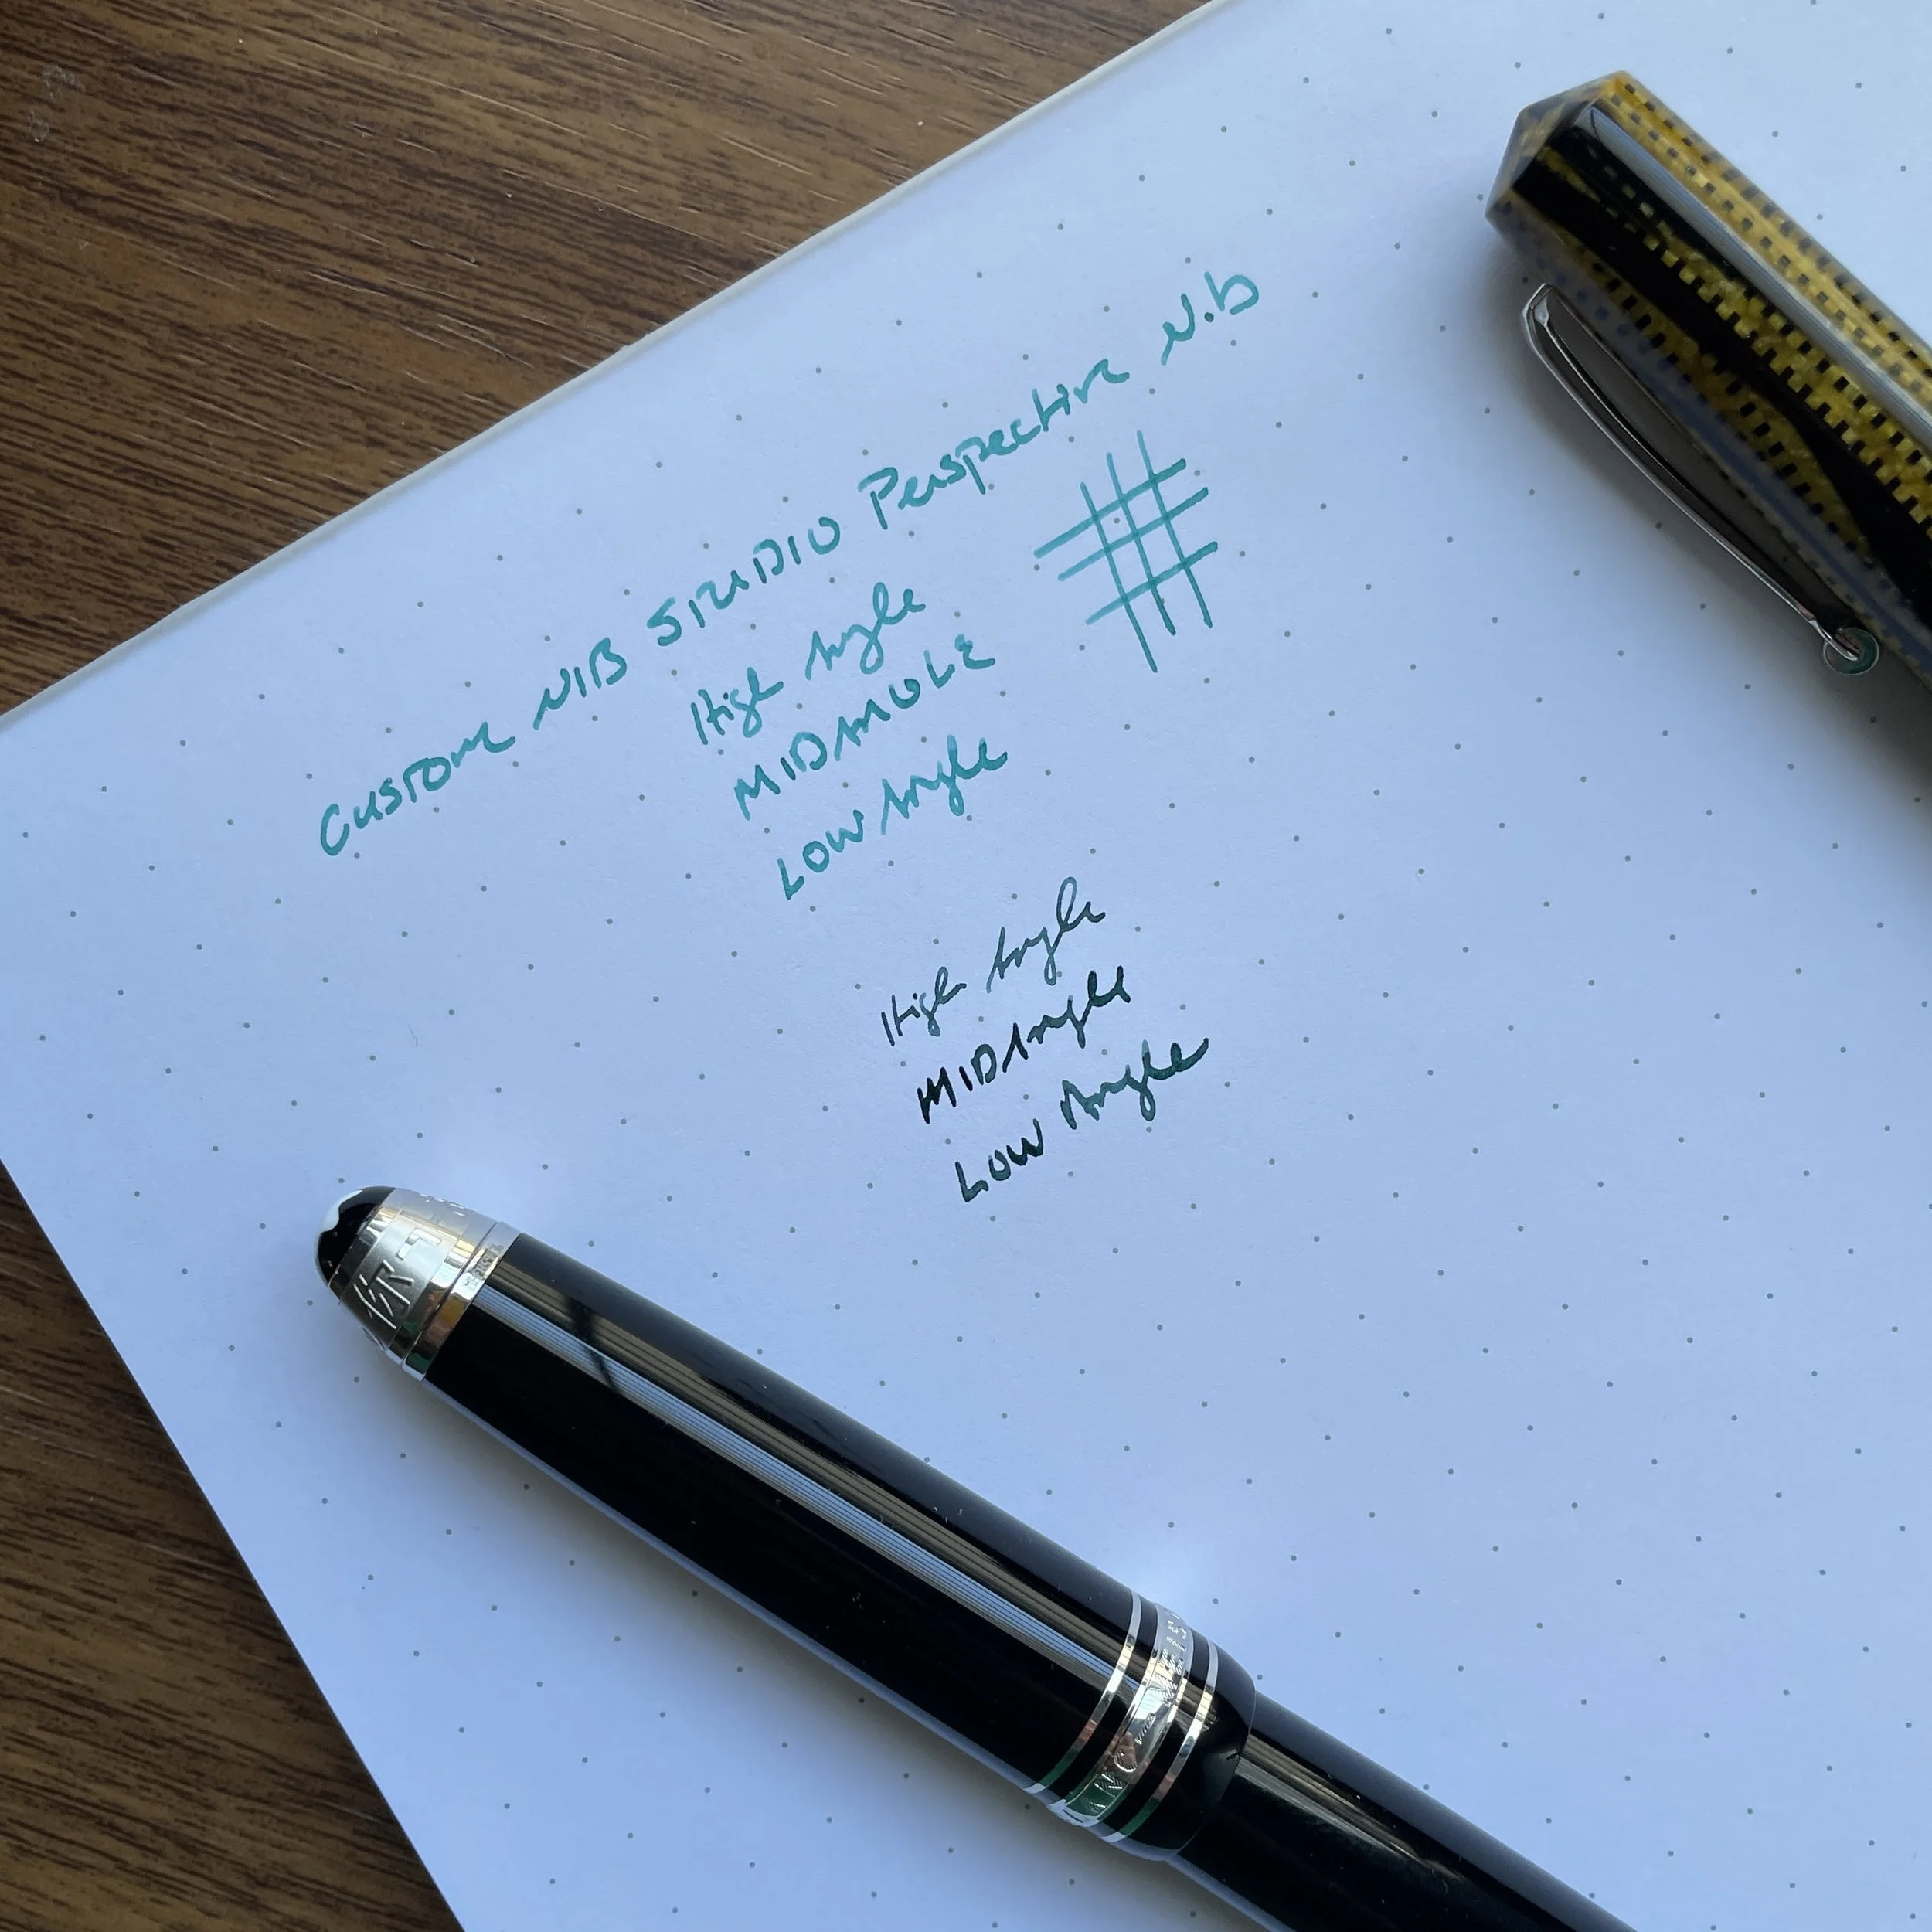 Custom NIB STUDIO Perspective Nib
High Angle
MIDANGLE
LOW Angle
High Angle
MIDAngle
LOW Angle
你